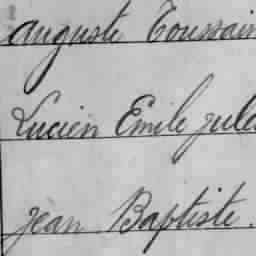 Auguste Toussain
Lucien Emile Jule
Jean Baptiste.